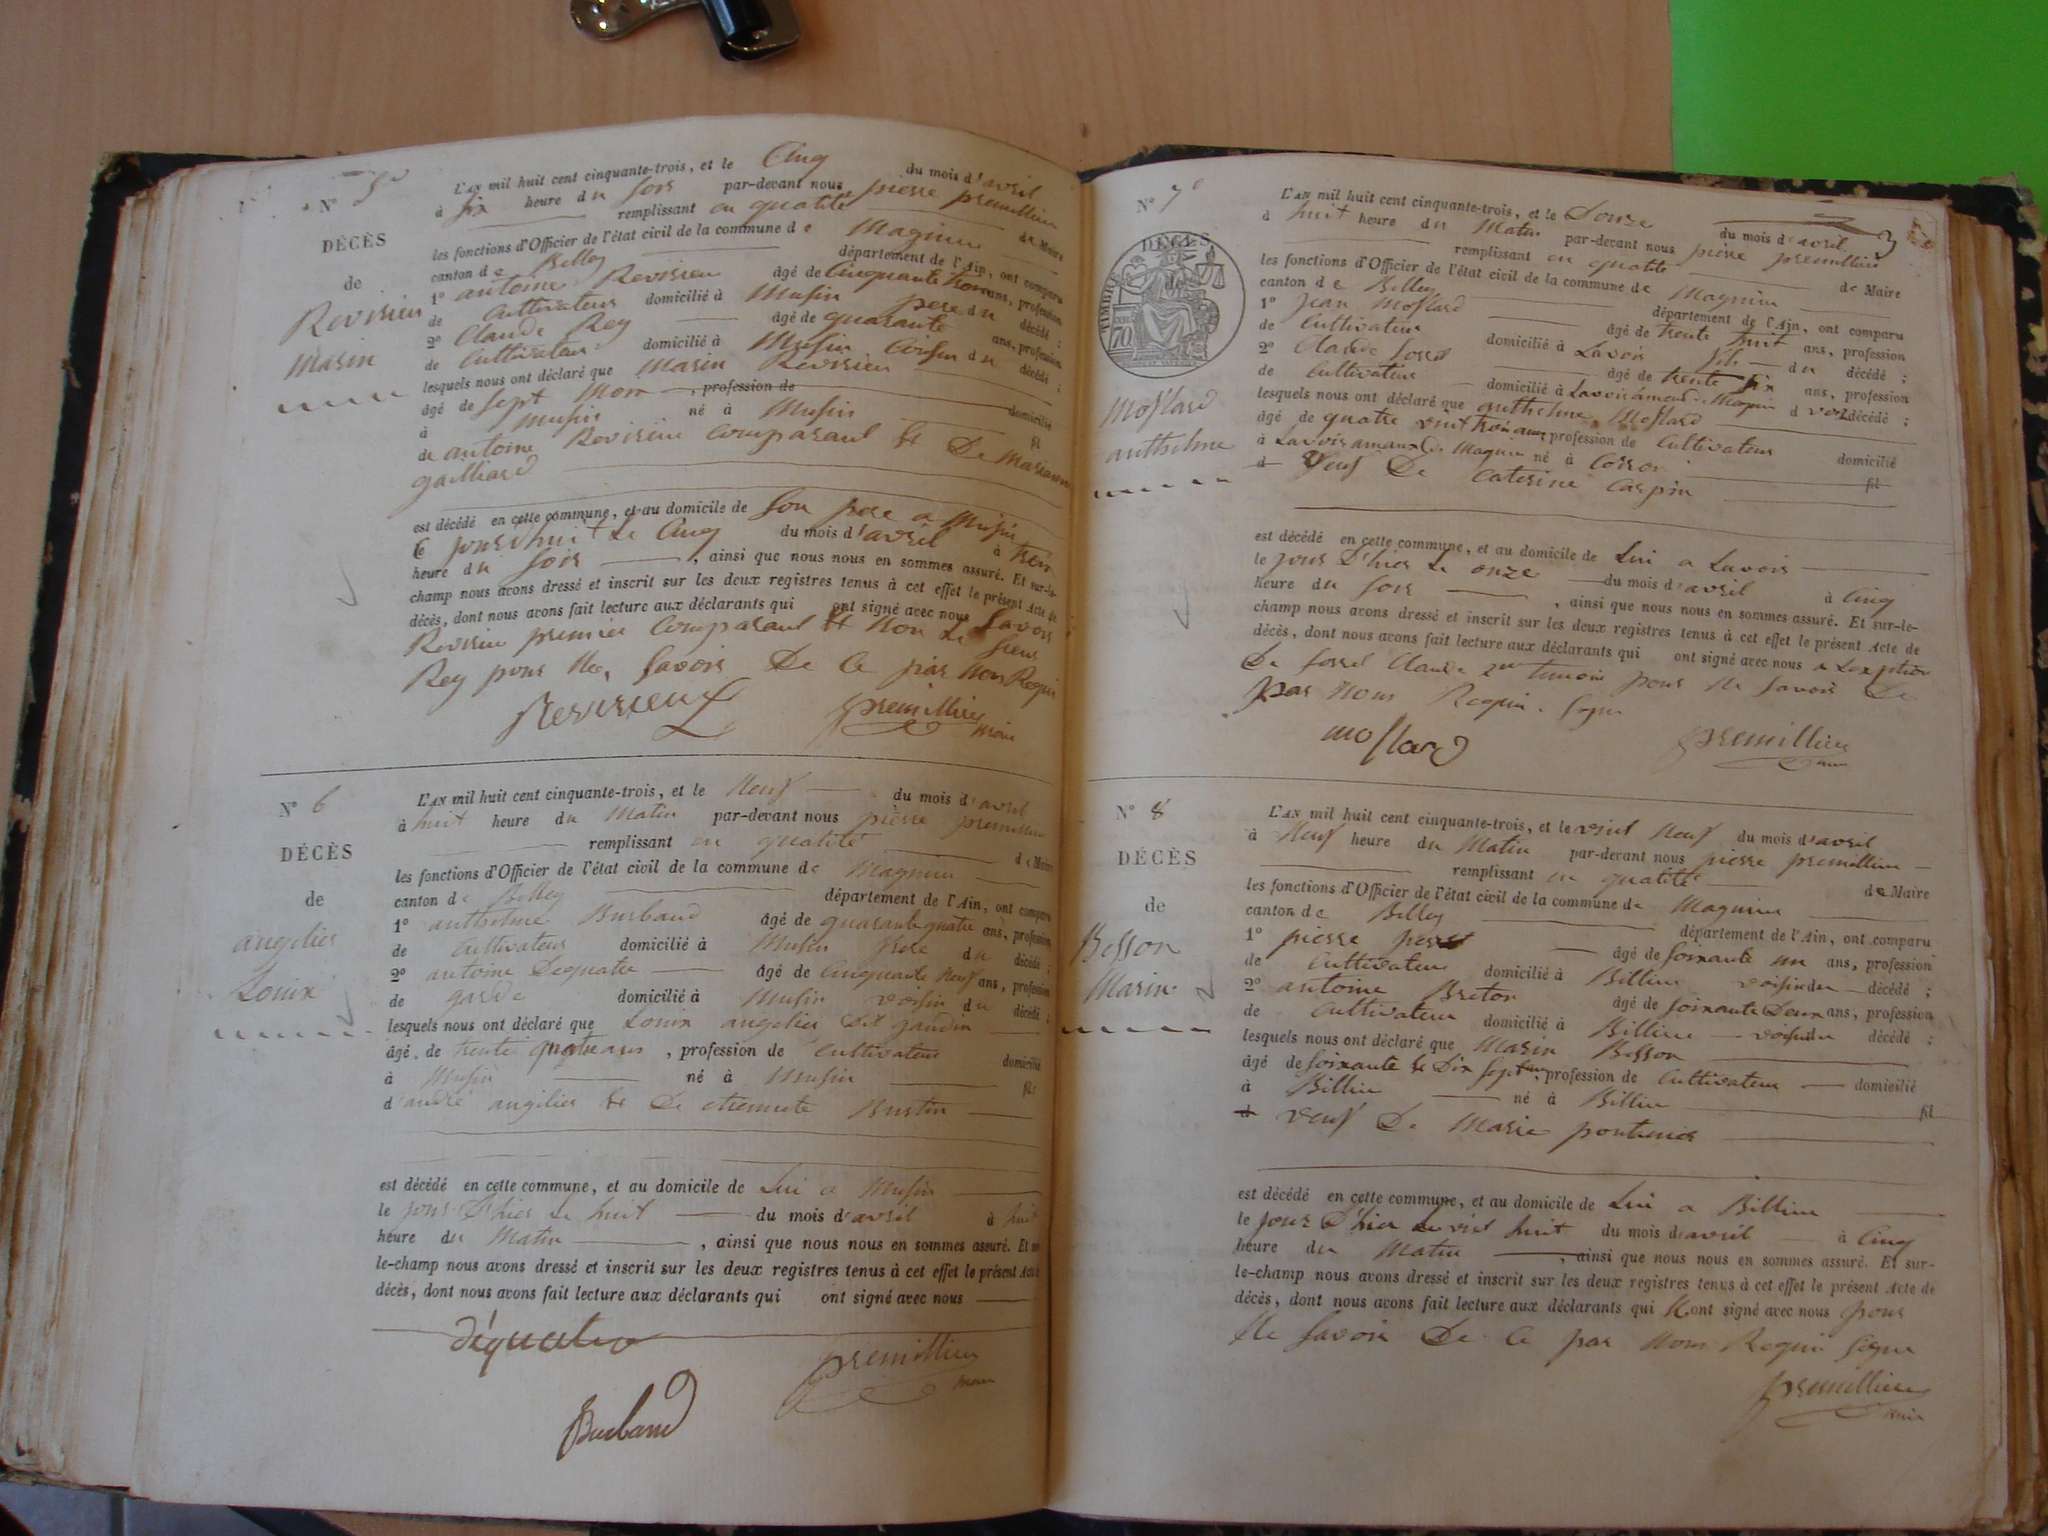 N° 5
DÉCÈS
de
Revirieu
Marin
L'AN mil huit cent cinquante-trois, et le Cinq du mois d'avril
à six heure du soir par-devant nous pierre premillieu
remplissant en qualité de Maire
les fonctions d'Officier de l'état civil de la commune de Magnieu
canton de Belley département de l'Ain, ont comparu
1° antoine Revirieu âgé de Cinquante trois ans, profession
de Cultivateur domicilié à Musin pere du décédé ;
2° Claude Rey âgé de quarante ans, profession
de Cultivateur domicilié à Musin Voisin du décédé ;
lesquels nous ont déclaré que Marin Revirieu
âgé de sept Mois, profession de domicilié
à Musin né à Musin fil
de antoine Revirieu Comparant et De Marianne
gailliard
est décédé en cette commune, et au domicile de son pere a Musin
le jourd'hui le Cinq du mois d'avril à trois
heure du soir, ainsi que nous nous en sommes assuré. Et sur-le-
champ nous avons dressé et inscrit sur les deux registres tenus à cet effet le présent Acte de
décès, dont nous avons fait lecture aux déclarants qui ont signé avec nous Savoir
Revirieu premier Comparant et non le sieur
Rey pour ne savoir De ce par nous Requis
Revirieux premillieu
maire
N° 6
DÉCÈS
de
angelier
Louis
L'AN mil huit cent cinquante-trois, et le Neuf du mois d'avril
à huit heure du Matin par-devant nous pierre premillieu
remplissant en qualité de Maire
les fonctions d'Officier de l'état civil de la commune de Magnieu
canton de Belley département de l'Ain, ont comparu
1° anthelme Burbaud âgé de quarante quatre ans, profession
de Cultivateur domicilié à Musin du décédé ;
2° antoine Dequatre âgé de Cinquante Neuf ans, profession
de garde domicilié à Musin voisin du décédé ;
lesquels nous ont déclaré que Louis angelier dit gaudin
âgé de trente quatre ans, profession de Cultivateur domicilié
à Musin né à Musin fil
d'andré angelier et De etiennette
est décédé en cette commune, et au domicile de Lui a Musin
le jour d'hier le huit du mois d'avril à huit
heure du Matin, ainsi que nous nous en sommes assuré. Et sur-
le-champ nous avons dressé et inscrit sur les deux registres tenus à cet effet le présent Acte de
décès, dont nous avons fait lecture aux déclarants qui ont signé avec nous
déquatre premillieu
maire
Burbaud
N° 7
DÉCÈS
TIMBRE
Mollard
anthelme
L'AN mil huit cent cinquante-trois, et le Douze du mois d'avril
à huit heure du Matin par-devant nous pierre premillieu
remplissant en qualité de Maire
les fonctions d'Officier de l'état civil de la commune de Magnieu
canton de Belley département de l'Ain, ont comparu
1° Jean Mollard âgé de trente huit ans, profession
de Cultivateur domicilié à Lavoir fils du décédé ;
2° Claude Sorrel âgé de trente six ans, profession
de Cultivateur domicilié à Lavoir de Magnieu décédé ;
lesquels nous ont déclaré que anthelme Mollard
âgé de quatre vint trois ans, profession de Cultivateur domicilié
à Lavoir de Magnieu né à fil
d Veuf De Caterine Carpin
est décédé en cette commune, et au domicile de Lui a Lavoir
le jour d'hier le onze du mois d'avril à Cinq
heure du soir, ainsi que nous nous en sommes assuré. Et sur-le-
champ nous avons dressé et inscrit sur les deux registres tenus à cet effet le présent Acte de
décès, dont nous avons fait lecture aux déclarants qui ont signé avec nous a L'exeption
De Sorrel Claude 2me temoin pour ne savoir De
par nous Requis Signé
mollard premillieu
maire
N° 8
DÉCÈS
de
Besson
Marin
L'AN mil huit cent cinquante-trois, et le vint Neuf du mois d'avril
à Neuf heure du Matin par-devant nous pierre premillieu
remplissant en qualité de Maire
les fonctions d'Officier de l'état civil de la commune de Magnieu
canton de Belley département de l'Ain, ont comparu
1° pierre âgé de soixante un ans, profession
de Cultivateur domicilié à Billieu voisin du décédé ;
2° antoine Breton âgé de soixante Deux ans, profession
de Cultivateur domicilié à Billieu voisin du décédé ;
lesquels nous ont déclaré que Marin Besson
âgé de soixante et Dix sept ans, profession de Cultivateur domicilié
à Billieu né à Billieu fil
d veuf De Marie pontanier
est décédé en cette commune, et au domicile de Lui a Billieu
le jour d'hier le vint huit du mois d'avril à Cinq
heure du Matin, ainsi que nous nous en sommes assuré. Et sur-
le-champ nous avons dressé et inscrit sur les deux registres tenus à cet effet le présent Acte de
décès, dont nous avons fait lecture aux déclarants qui n'ont signé avec nous pour
ne savoir De ce par nous Requis Signé
premillieu
maire